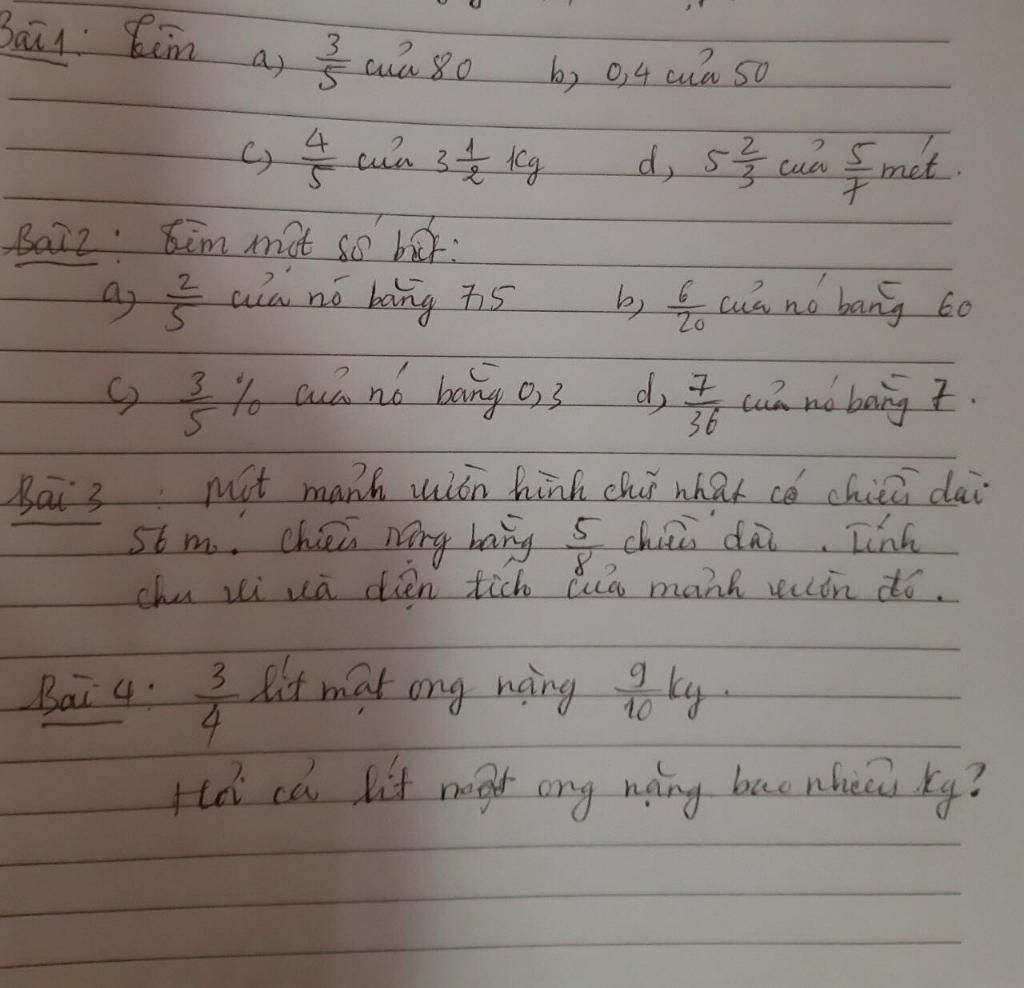 Bài 1: Tìm a, 3/5 của 80 b, 0,4 của 50
c, 4/5 của 3 1/2 kg d, 5 2/3 của 5/7 mét.
Bài 2: Tìm một số biết:
a, 2/5 của nó bằng 7,5 b, 6/20 của nó bằng 60
c, 3/5 % của nó bằng 0,3 d, 7/36 của nó bằng 7.
Bài 3: Một mảnh vườn hình chữ nhật có chiều dài
56 m. Chiều rộng bằng 5/8 chiều dài. Tính
chu vi và diện tích của mảnh vườn đó.
Bài 4: 3/4 lít mật ong nặng 9/10 kg.
Hỏi cả lít mật ong nặng bao nhiêu kg?